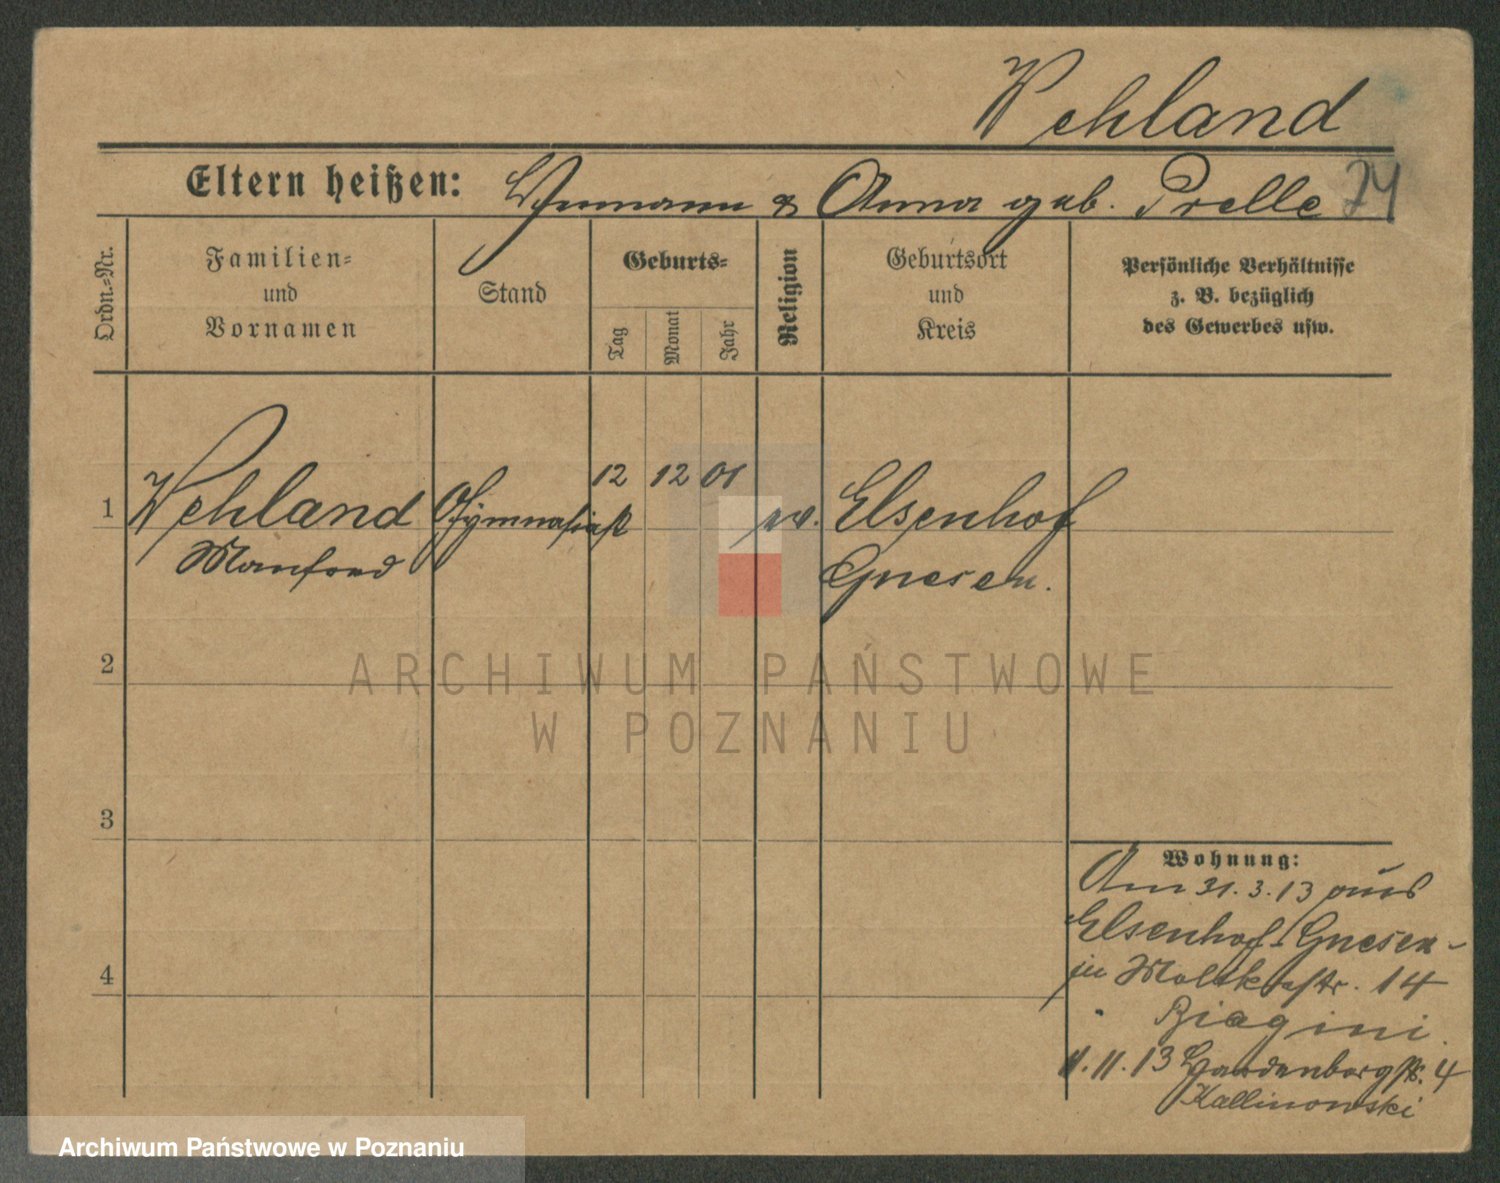 Wehland
Eltern heißen: Hermann & Anna geb. Prelle 74
Ordn.=Nr.
Familien=
und
Vornamen
Stand
Geburts=
Tag
Monat
Jahr
Religion
Geburtsort
und
Kreis
Persönliche Verhältnisse
z. B. bezüglich
des Gewerbes usw.
1 Wehland Gymnasiast 12 12 01 ev. Elsenhof
Manfred Gnesen.
2
ARCHIWUM PAŃSTWOWE
W POZNANIU
3
Wohnung:
Am 31.3.13 aus
Elsenhof-Gnesen-
in Moltkestr. 14
Biagini.
11.11.13 Hardenbergstr. 4
Kallinowski
4
Archiwum Państwowe w Poznaniu